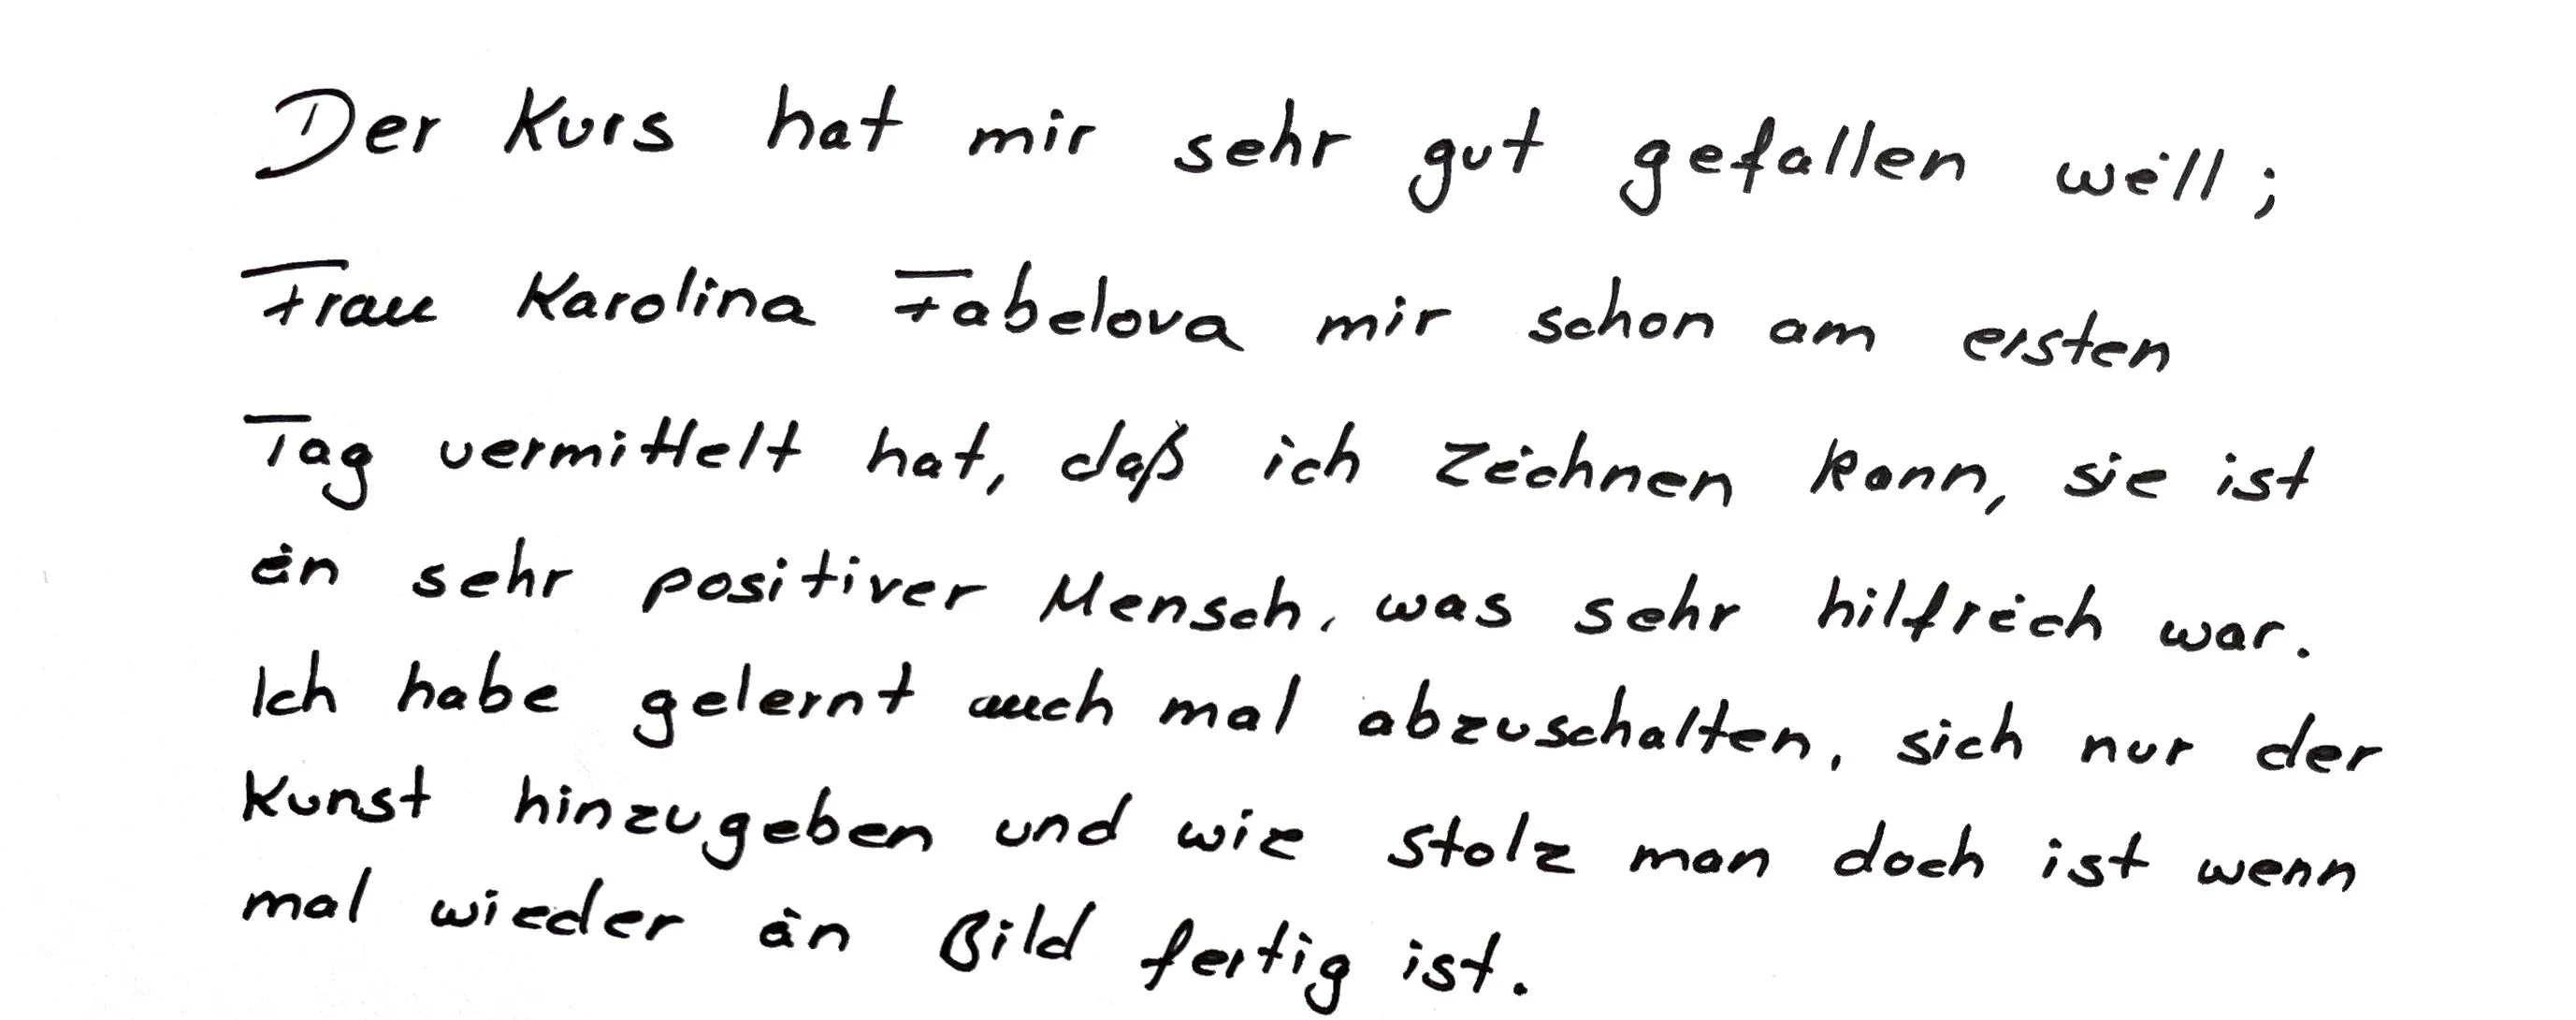 Der Kurs hat mir sehr gut gefallen weill;
Frau Karolina Fabelova mir schon am ersten
Tag vermittelt hat, daß ich zeichnen kann, sie ist
ein sehr positiver Mensch, was sehr hilfreich war.
Ich habe gelernt auch mal abzuschalten, sich nur der
Kunst hinzugeben und wie stolz man doch ist wenn
mal wieder ein Bild fertig ist.